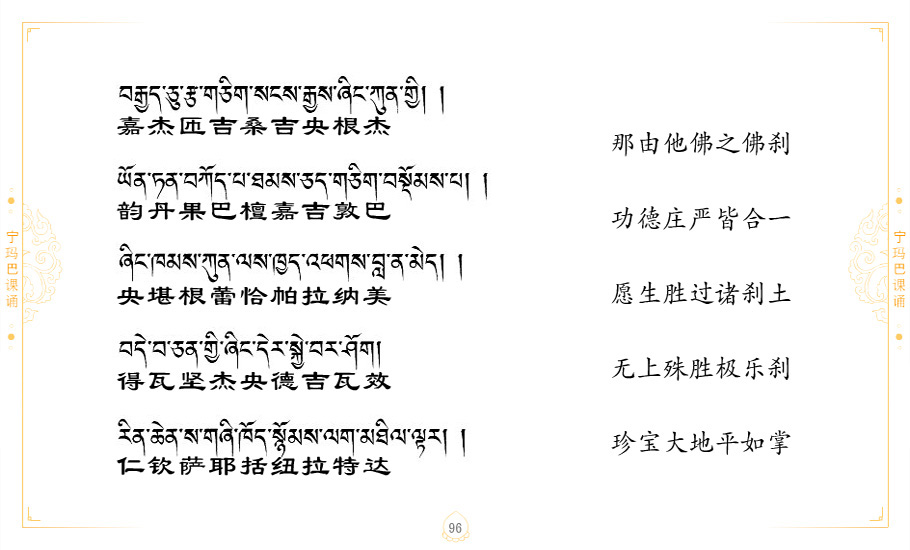 བརྒྱད་ཅུ་རྩ་གཅིག་སངས་རྒྱས་ཞིང་ཀུན་གྱི། །
嘉杰匝吉桑吉央根杰
那由他佛之佛刹
ཡོན་ཏན་བཀོད་པ་ཐམས་ཅད་གཅིག་བསྡོམས་པ། །
韵丹果巴檀嘉吉敦巴
功德庄严皆合一
ཞིང་ཁམས་ཀུན་ལས་ཁྱད་འཕགས་བླ་ན་མེད། །
央堪根蕾恰帕拉纳美
愿生胜过诸刹土
བདེ་བ་ཅན་གྱི་ཞིང་དེར་སྐྱེ་བར་ཤོག།
得瓦坚杰央德吉瓦效
无上殊胜极乐刹
རིན་ཆེན་ས་གཞི་ཁོད་སྙོམས་ལག་མཐིལ་ལྟར། །
仁钦萨耶括纽拉特达
珍宝大地平如掌
宁玛巴课诵
宁玛巴课诵
96